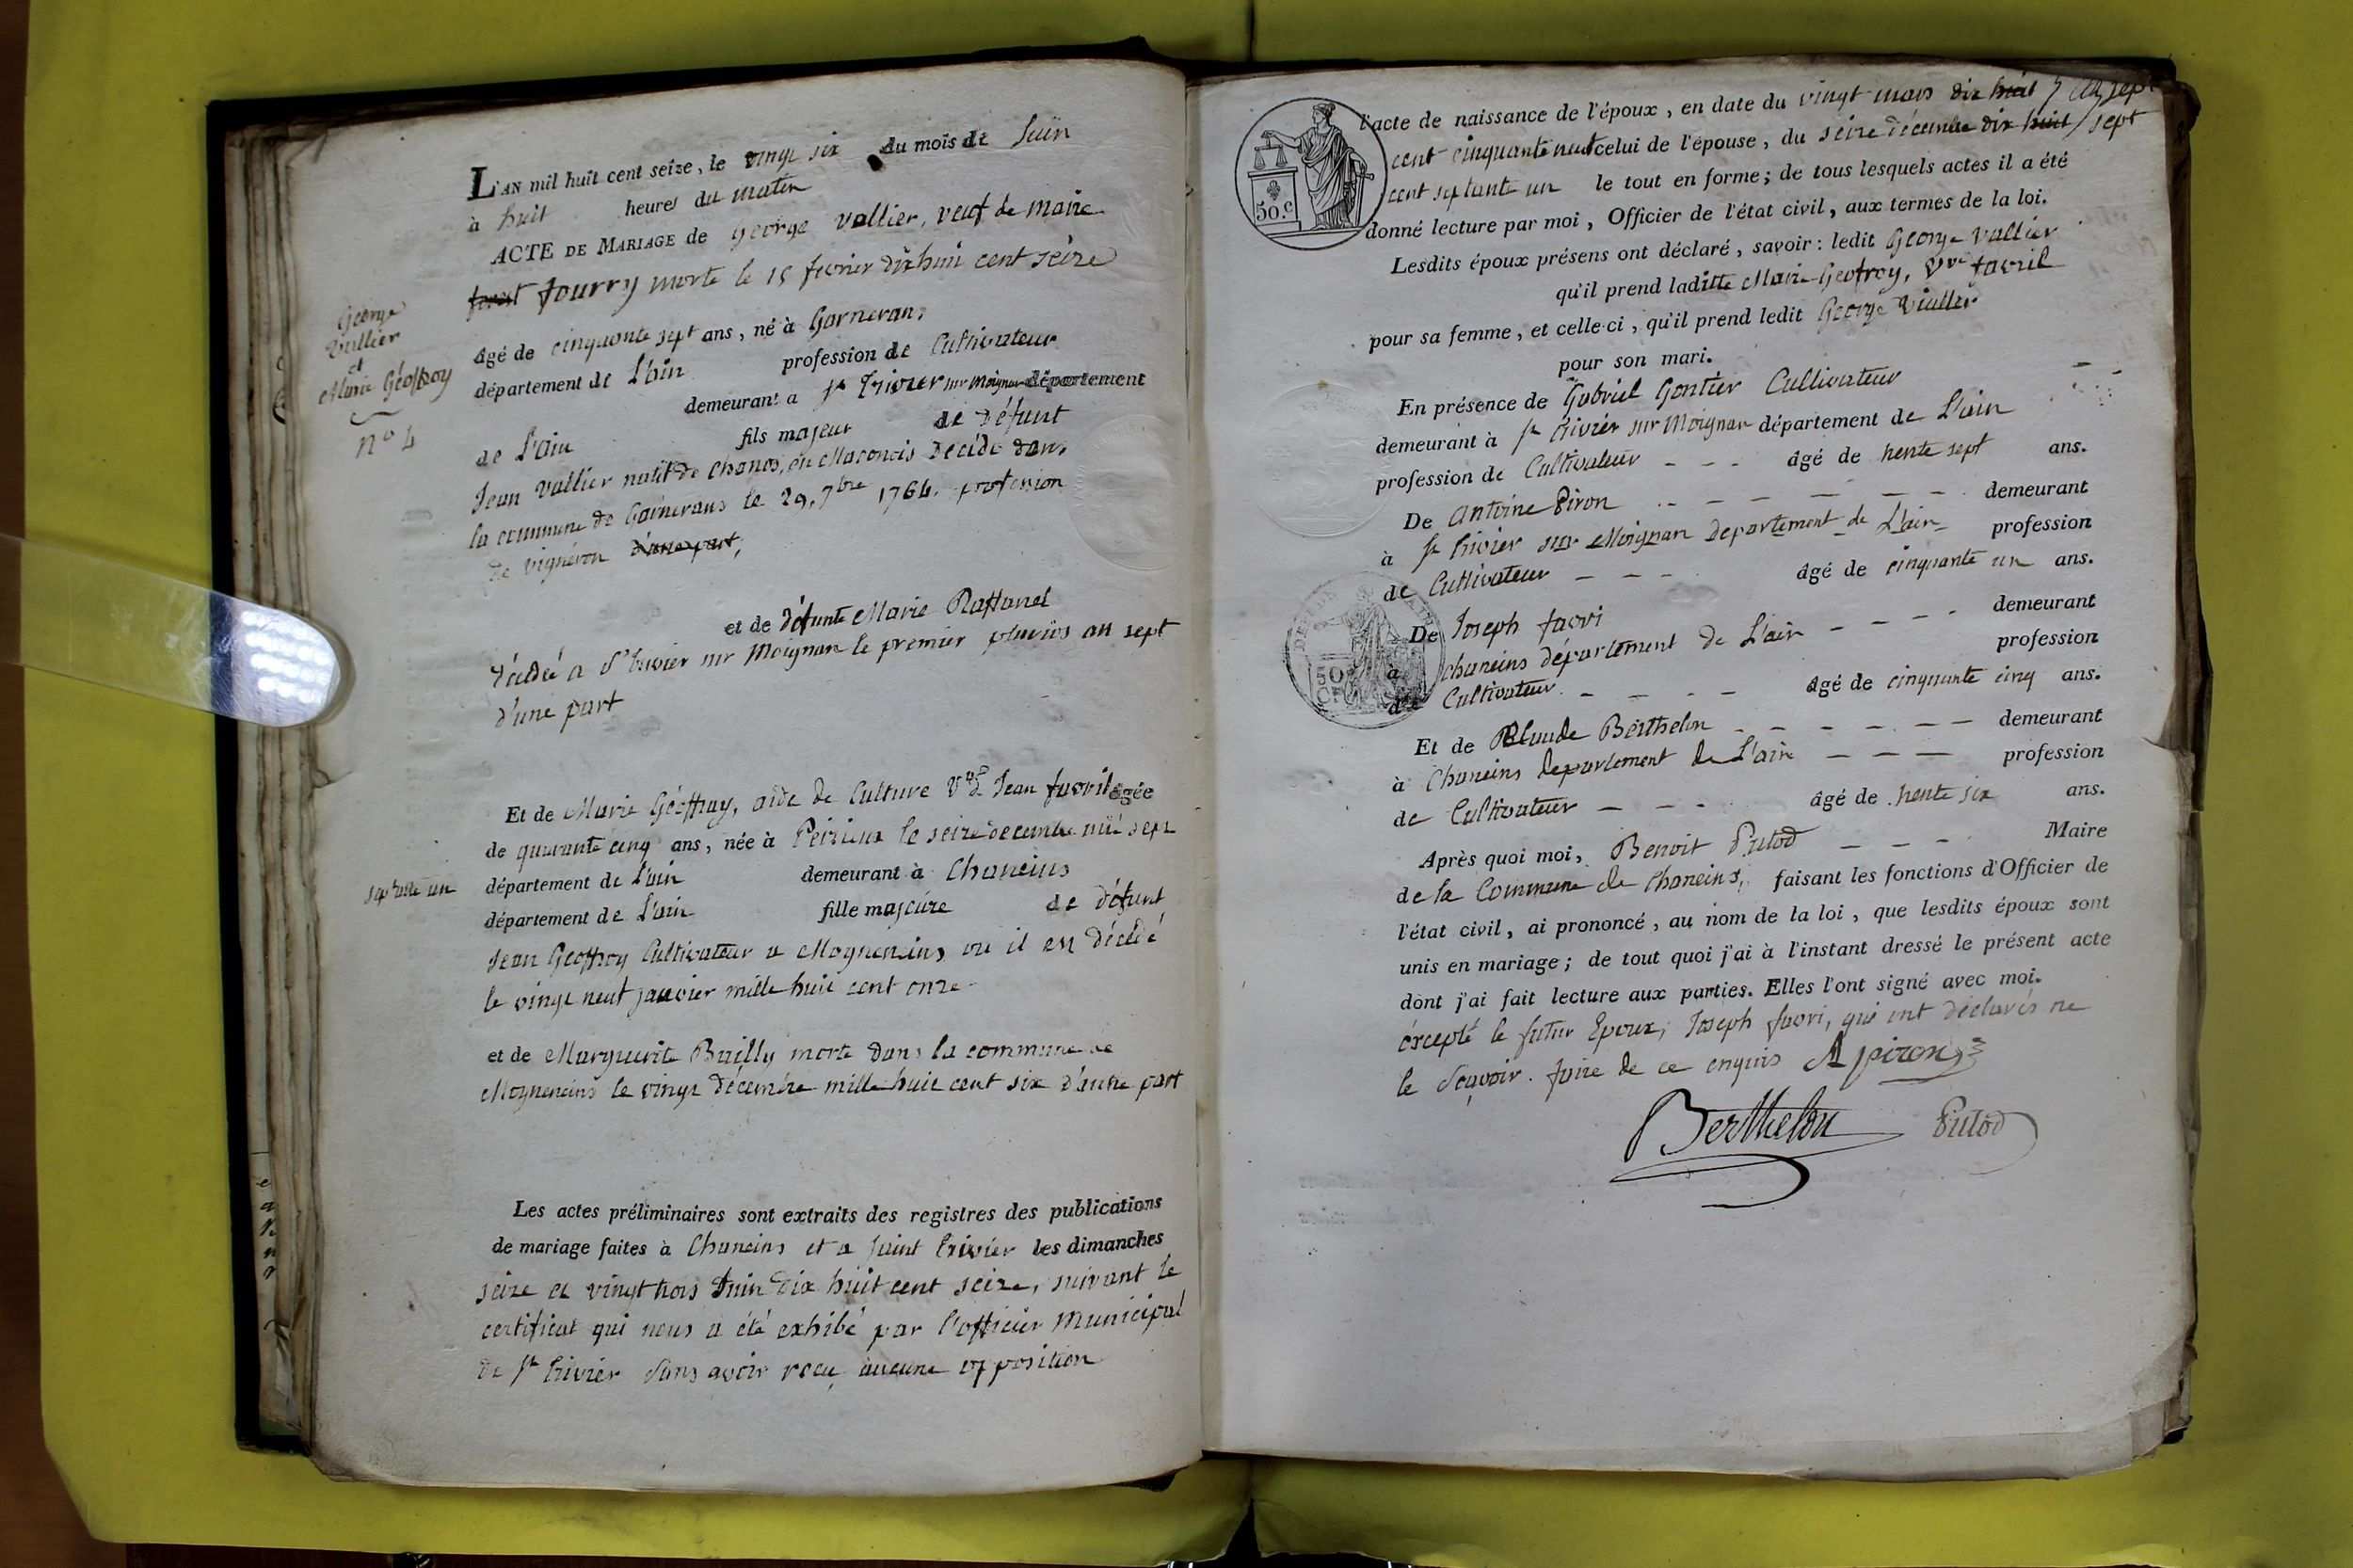 L'AN mil huit cent seize, le vingt six du mois de Juin
à huit heures du matin
ACTE DE MARIAGE de george vallier, veuf de marie
Fourry morte le 15 fevrier dix huit cent seize
George
Vallier
et
Marie Géoffroy
n° 4
âgé de cinquante sept ans, né à Garnerans
département de L'ain profession de Cultivateur
demeurant a St Trivier sur Moignan département
de L'ain fils majeur de défunt
Jean vallier natif de Chanes, en Maconois décédé dans
la commune de Garnerans le 29. 7bre 1764. profession
de vigneron d'une part,
et de défunte Marie Raffanel
décédée a St trivier sur Moignan le premier pluvios an sept
d'une part
Et de Marie Géoffray, aide de Culture Vve de Jean favril âgée
de quarante cinq ans, née à Peizieux le seize decembre mil sept
septante un
département de L'ain demeurant à Chaneins
département de L'ain fille majeure de défunt
Jean Geoffroy Cultivateur a Mogneneins ou il est décédé
le vingt neuf janvier mille huit cent onze
et de Marguerite Bailly morte dans la commune de
Mogneneins le vingt décembre mille huit cent six d'autre part
Les actes préliminaires sont extraits des registres des publications
de mariage faites à Chaneins et a Saint Trivier les dimanches
seize et vingt trois Juin dix huit cent seize, suivant le
certificat qui nous a été exhibé par l'officier Municipal
de St Trivier sans avoir reçu aucune opposition
l'acte de naissance de l'époux, en date du vingt mars dix huit sept
cent cinquante neuf celui de l'épouse, du seize décembre dix huit / sept
cent septante un le tout en forme; de tous lesquels actes il a été
donné lecture par moi, Officier de l'état civil, aux termes de la loi.
Lesdits époux présens ont déclaré, savoir: ledit George Vallier
qu'il prend laditte Marie Geofroy, Vve favril
pour sa femme, et celle-ci, qu'il prend ledit George Viallier
pour son mari.
En présence de Gabriel Gontier Cultivateur
demeurant à St trivier sur Moignan département de L'ain
profession de Cultivateur - - - âgé de trente sept ans.
De antoine Piron - - - - - - demeurant
à St trivier sur Moignan departement de L'ain profession
de Cultivateur - - - âgé de cinquante un ans.
De Joseph favri - - - - demeurant
à Chaneins département de L'ain profession
de Cultivateur - - - - âgé de cinquante cinq ans.
Et de Claude Berthelon - - - - - - - demeurant
à Chaneins departement de L'ain - - - profession
de Cultivateur - - - âgé de trente six ans.
Après quoi moi, Benoit Putod - - - Maire
de la Commune de Chaneins, faisant les fonctions d'Officier de
l'état civil, ai prononcé, au nom de la loi, que lesdits époux sont
unis en mariage; de tout quoi j'ai à l'instant dressé le présent acte
dont j'ai fait lecture aux parties. Elles l'ont signé avec moi.
éxcepté le futur Epoux, Joseph favri, qui ont déclarés ne
le Sçavoir. faire de ce enquis A piron
Berthelon Putod
50.c
50